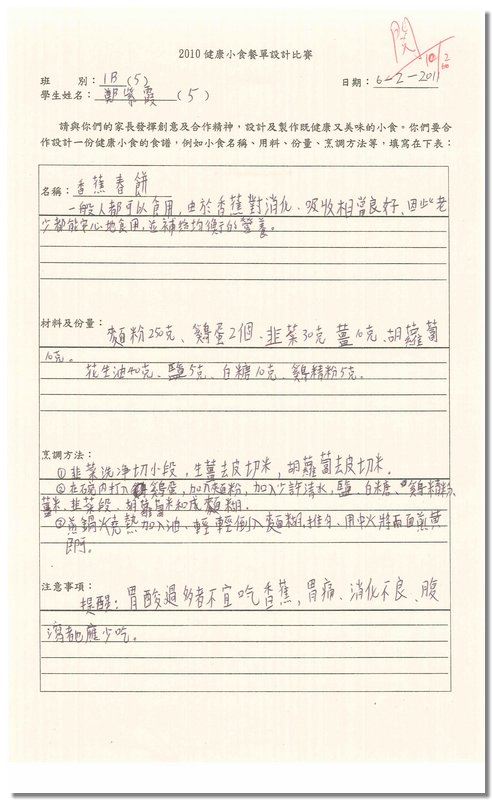 閱
10/2
2010 健康小食餐單設計比賽
班 別：1B (5)
日期：6-2-2011
學生姓名：鄭紫霞 (5)
請與你們的家長發揮創意及合作精神，設計及製作既健康又美味的小食。你們要合
作設計一份健康小食的食譜，例如小食名稱、用料、份量、烹調方法等，填寫在下表：
名稱：香蕉春餅
一般人都可以食用，由於香蕉對消化、吸收相當良好，因此老
少都能安心地食用，並補給均衡的營養。
材料及份量：麵粉250克、鷄蛋2個、韭菜30克 薑10克、胡蘿蔔
10克。
花生油40克、鹽5克、白糖10克、鷄精粉5克。
烹調方法：
①韭菜洗淨切小段，生薑去皮切米，胡蘿蔔去皮切米。
②在碗內打入鷄蛋，加入麵粉，加入少許清水，鹽、白糖、鷄精粉、
薑米、韭菜段、胡蘿蔔米和成麵糊。
③煎鍋火燒熱加入油、輕輕倒入麵糊，推勻、用中火將兩面煎黃
即可。
注意事項：
提醒：胃酸過多者不宜吃香蕉，胃痛、消化不良、腹
瀉者也應少吃。